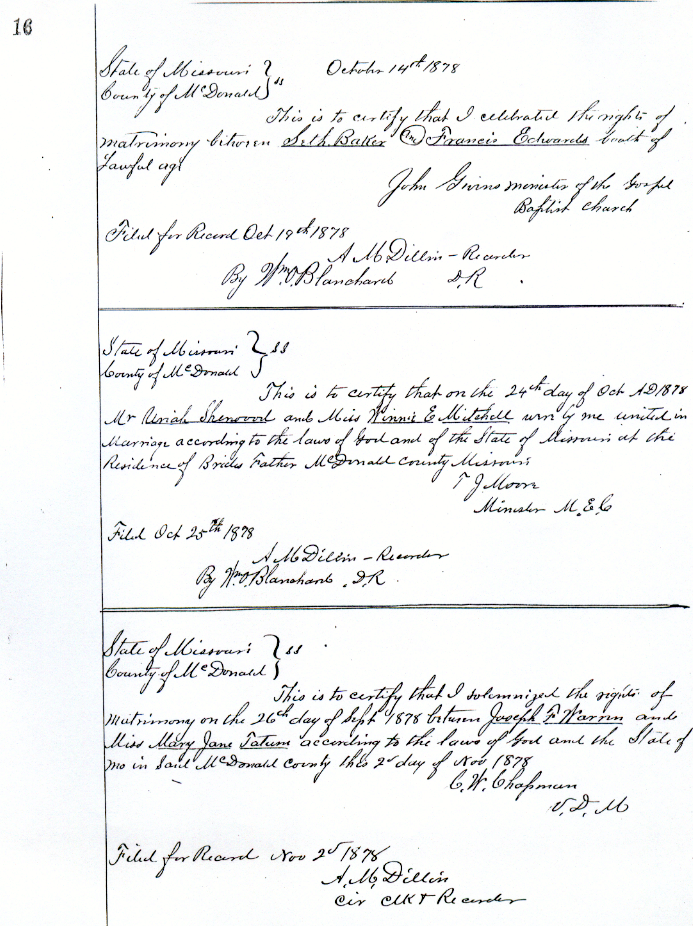 16
State of Missouri } ss October 14th 1878
County of McDonald
This is to certify that I celebrated the rights of
matrimony between Seth Baker and Francis Edwards boath of
Lawful age
John Givins minister of the Gospel
Baptist Church
Filed for Record Oct 19th 1878
A M Dillin - Recorder
By Wm O. Blanchard D.R.
State of Missouri } ss
County of McDonald
This is to certify that on the 24th day of Oct AD 1878
Mr Uriah Sherwood and Miss Winnie E Mitchell were by me united in
Marriage according to the laws of God and of the State of Missouri at the
Residence of Brides Father McDonald County Missouri
T J Moore
Minister M.E.C
Filed Oct 25th 1878
A M Dillin - Recorder
By Wm O. Blanchard D.R.
State of Missouri } ss
County of McDonald
This is to certify that I solemnized the rights of
Matrimony on the 26th day of Sept 1878 between Joseph F Warren and
Miss Mary Jane Tatum according to the laws of God and the State of
Mo in said McDonald county this 2d day of Nov 1878
C. W. Chapman
V. D. M
Filed for Record Nov 2d 1878
A. M. Dillin
Cir Clk & Recorder